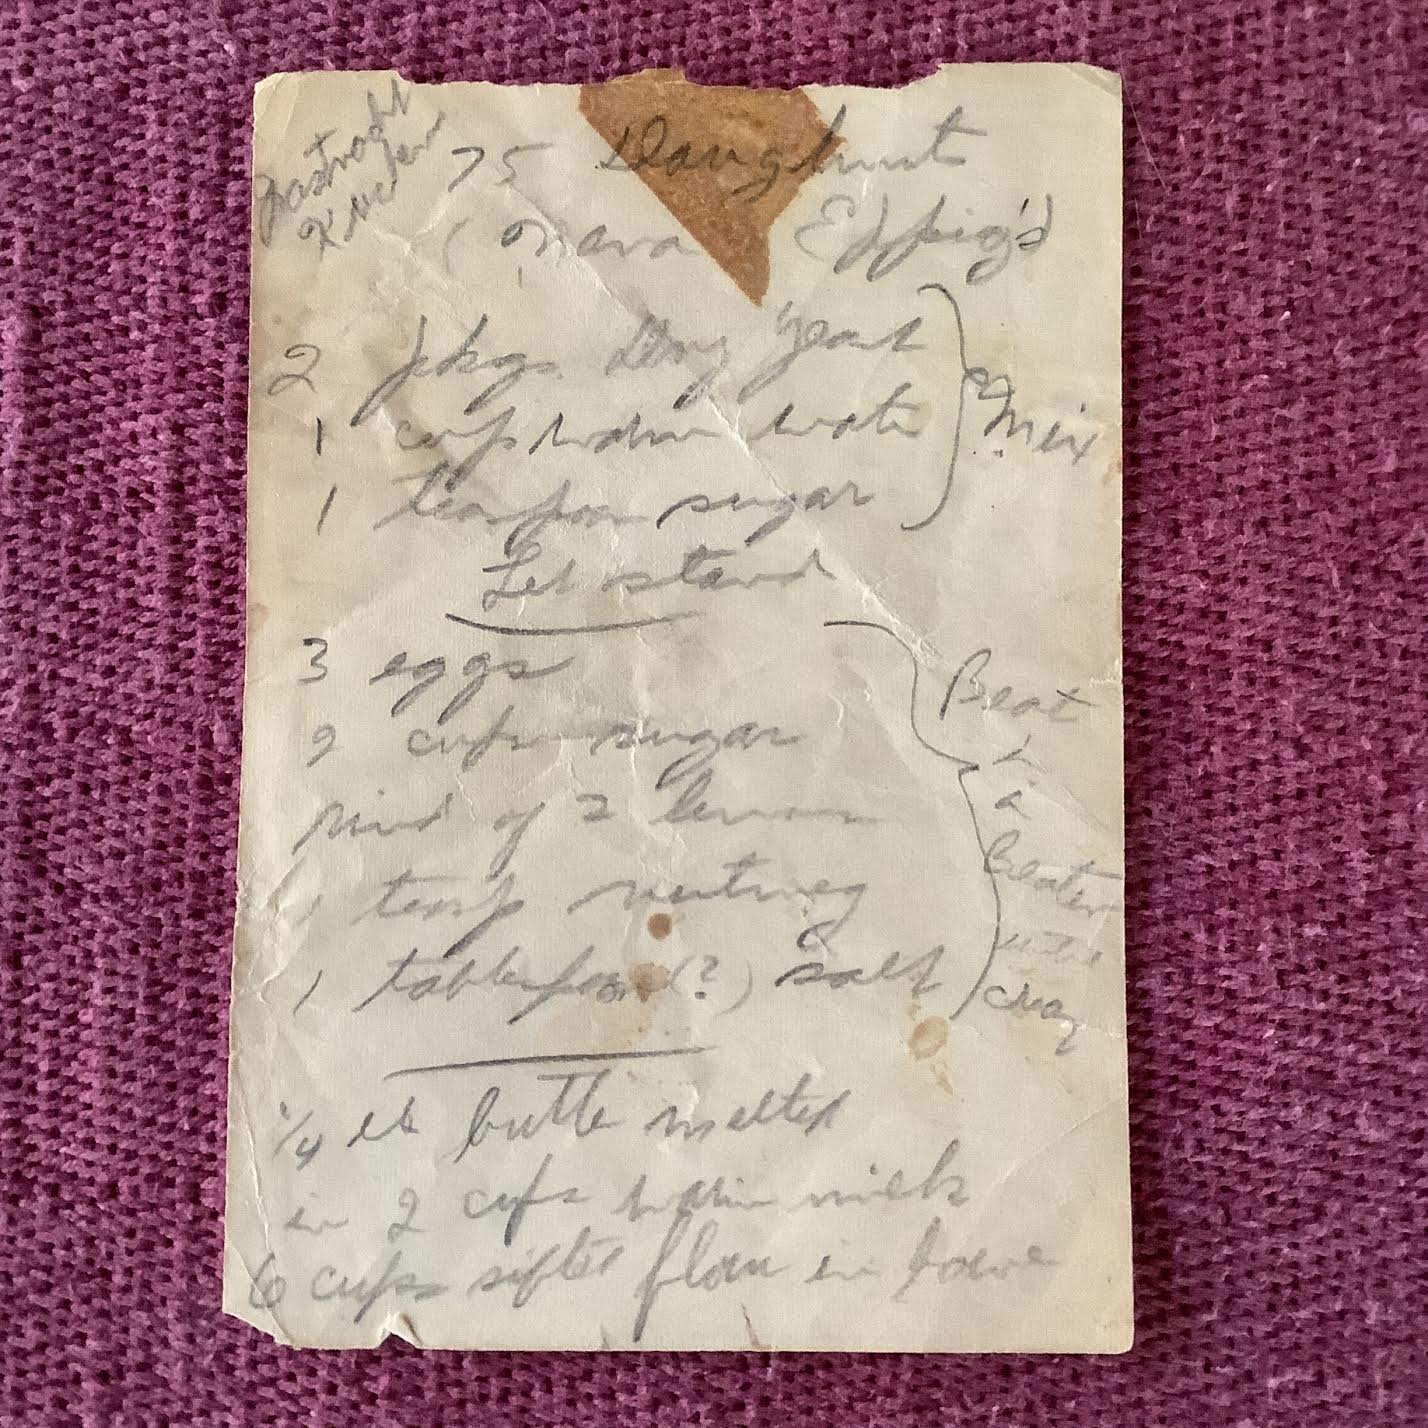 Fastnacht
75 Doughnut
( Mara Eppig's
2 pkgs. dry yeast
1 cup warm water
1 teaspoon sugar
Mix
Let stand
3 eggs
2 cups sugar
rind of 2 lemon
1 teasp nutmeg
1 tablespoon (?) salt
Beat
a
beater
¼ lb butter melted
in 2 cups warm milk
6 cups sifted flour in